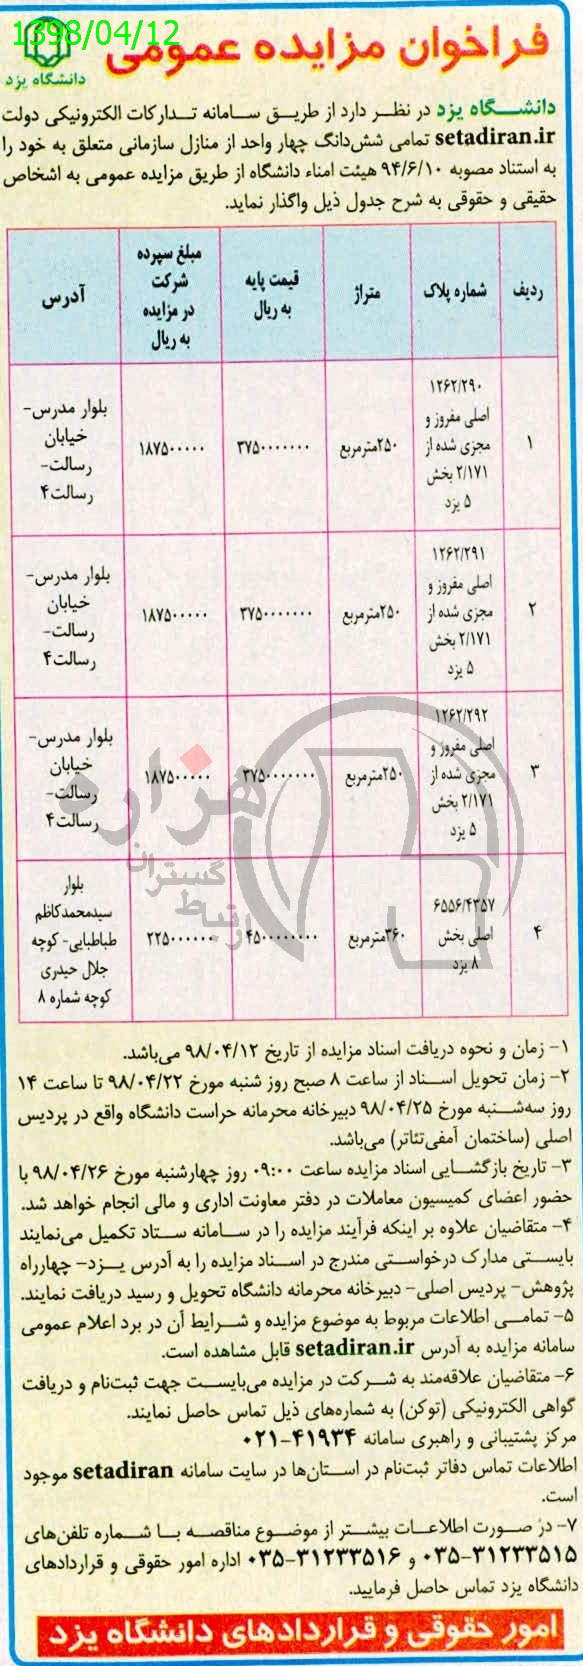 1398/04/12
فراخوان مزایده عمومی
دانشگاه یزد
دانشـــگاه یزد در نظــر دارد از طریــق ســامانه تــدارکات الکترونیکی دولت
setadiran.ir تمامی شش‌دانگ چهار واحد از منازل سازمانی متعلق به خود را
به استناد مصوبه ۹۴/۶/۱۰ هیئت امناء دانشگاه از طریق مزایده عمومی به اشخاص
حقیقی و حقوقی به شرح جدول ذیل واگذار نماید.
ردیف
شماره پلاک
متراژ
قیمت پایه
به ریال
مبلغ سپرده
شرکت
در مزایده
به ریال
آدرس
۱
۱۲۶۲/۲۹۰
اصلی مفروز و
مجزی شده از
۲/۱۷۱ بخش
۵ یزد
۲۵۰مترمربع
۳۷۵۰۰۰۰۰۰۰
۱۸۷۵۰۰۰۰۰
بلوار مدرس-
خیابان
رسالت-
رسالت۴
۲
۱۲۶۲/۲۹۱
اصلی مفروز و
مجزی شده از
۲/۱۷۱ بخش
۵ یزد
۲۵۰مترمربع
۳۷۵۰۰۰۰۰۰۰
۱۸۷۵۰۰۰۰۰
بلوار مدرس-
خیابان
رسالت-
رسالت۴
۳
۱۲۶۲/۲۹۲
اصلی مفروز و
مجزی شده از
۲/۱۷۱ بخش
۵ یزد
۲۵۰مترمربع
۳۷۵۰۰۰۰۰۰۰
۱۸۷۵۰۰۰۰۰
بلوار مدرس-
خیابان
رسالت-
رسالت۴
۴
۶۵۵۶/۴۳۵۷
اصلی بخش
۸ یزد
۳۶۰مترمربع
۴۵۰۰۰۰۰۰۰۰
۲۲۵۰۰۰۰۰۰
بلوار
سیدمحمدکاظم
طباطبایی- کوچه
جلال حیدری
کوچه شماره ۸
هزاره
گستران
ارتباط
۱- زمان و نحوه دریافت اسناد مزایده از تاریخ ۹۸/۰۴/۱۲ می‌باشد.
۲- زمان تحویل اســناد از ساعت ۸ صبح روز شنبه مورخ ۹۸/۰۴/۲۲ تا ساعت ۱۴
روز سه‌شــنبه مورخ ۹۸/۰۴/۲۵ دبیرخانه محرمانه حراست دانشگاه واقع در پردیس
اصلی (ساختمان آمفی‌تئاتر) می‌باشد.
۳- تاریخ بازگشــایی اسناد مزایده ساعت ۰۹:۰۰ روز چهارشنبه مورخ ۹۸/۰۴/۲۶ با
حضور اعضای کمیسیون معاملات در دفتر معاونت اداری و مالی انجام خواهد شد.
۴- متقاضیان علاوه بر اینکه فرآیند مزایده را در ســامانه ستاد تکمیل می‌نمایند
بایســتی مدارک درخواســتی مندرج در اســناد مزایده را به آدرس یــزد- چهارراه
پژوهش- پردیس اصلی- دبیرخانه محرمانه دانشگاه تحویل و رسید دریافت نمایند.
۵- تمامــی اطلاعات مربوط به موضوع مزایده و شــرایط آن در برد اعلام عمومی
سامانه مزایده به آدرس setadiran.ir قابل مشاهده است.
۶- متقاضیان علاقه‌مند به شــرکت در مزایده می‌بایســت جهت ثبت‌نام و دریافت
گواهی الکترونیکی (توکن) به شماره‌های ذیل تماس حاصل نمایند.
مرکز پشتیبانی و راهبری سامانه ۴۱۹۳۴-۰۲۱
اطلاعات تماس دفاتر ثبت‌نام در اســتان‌ها در سایت سامانه setadiran موجود
است.
۷- در صــورت اطلاعــات بیشــتر از موضــوع مناقصــه بــا شــماره تلفن‌های
۰۳۵-۳۱۲۳۳۵۱۵ و ۰۳۵-۳۱۲۳۳۵۱۶ اداره امور حقوقی و قراردادهای
دانشگاه یزد تماس حاصل فرمایید.
امور حقوقی و قراردادهای دانشگاه یزد